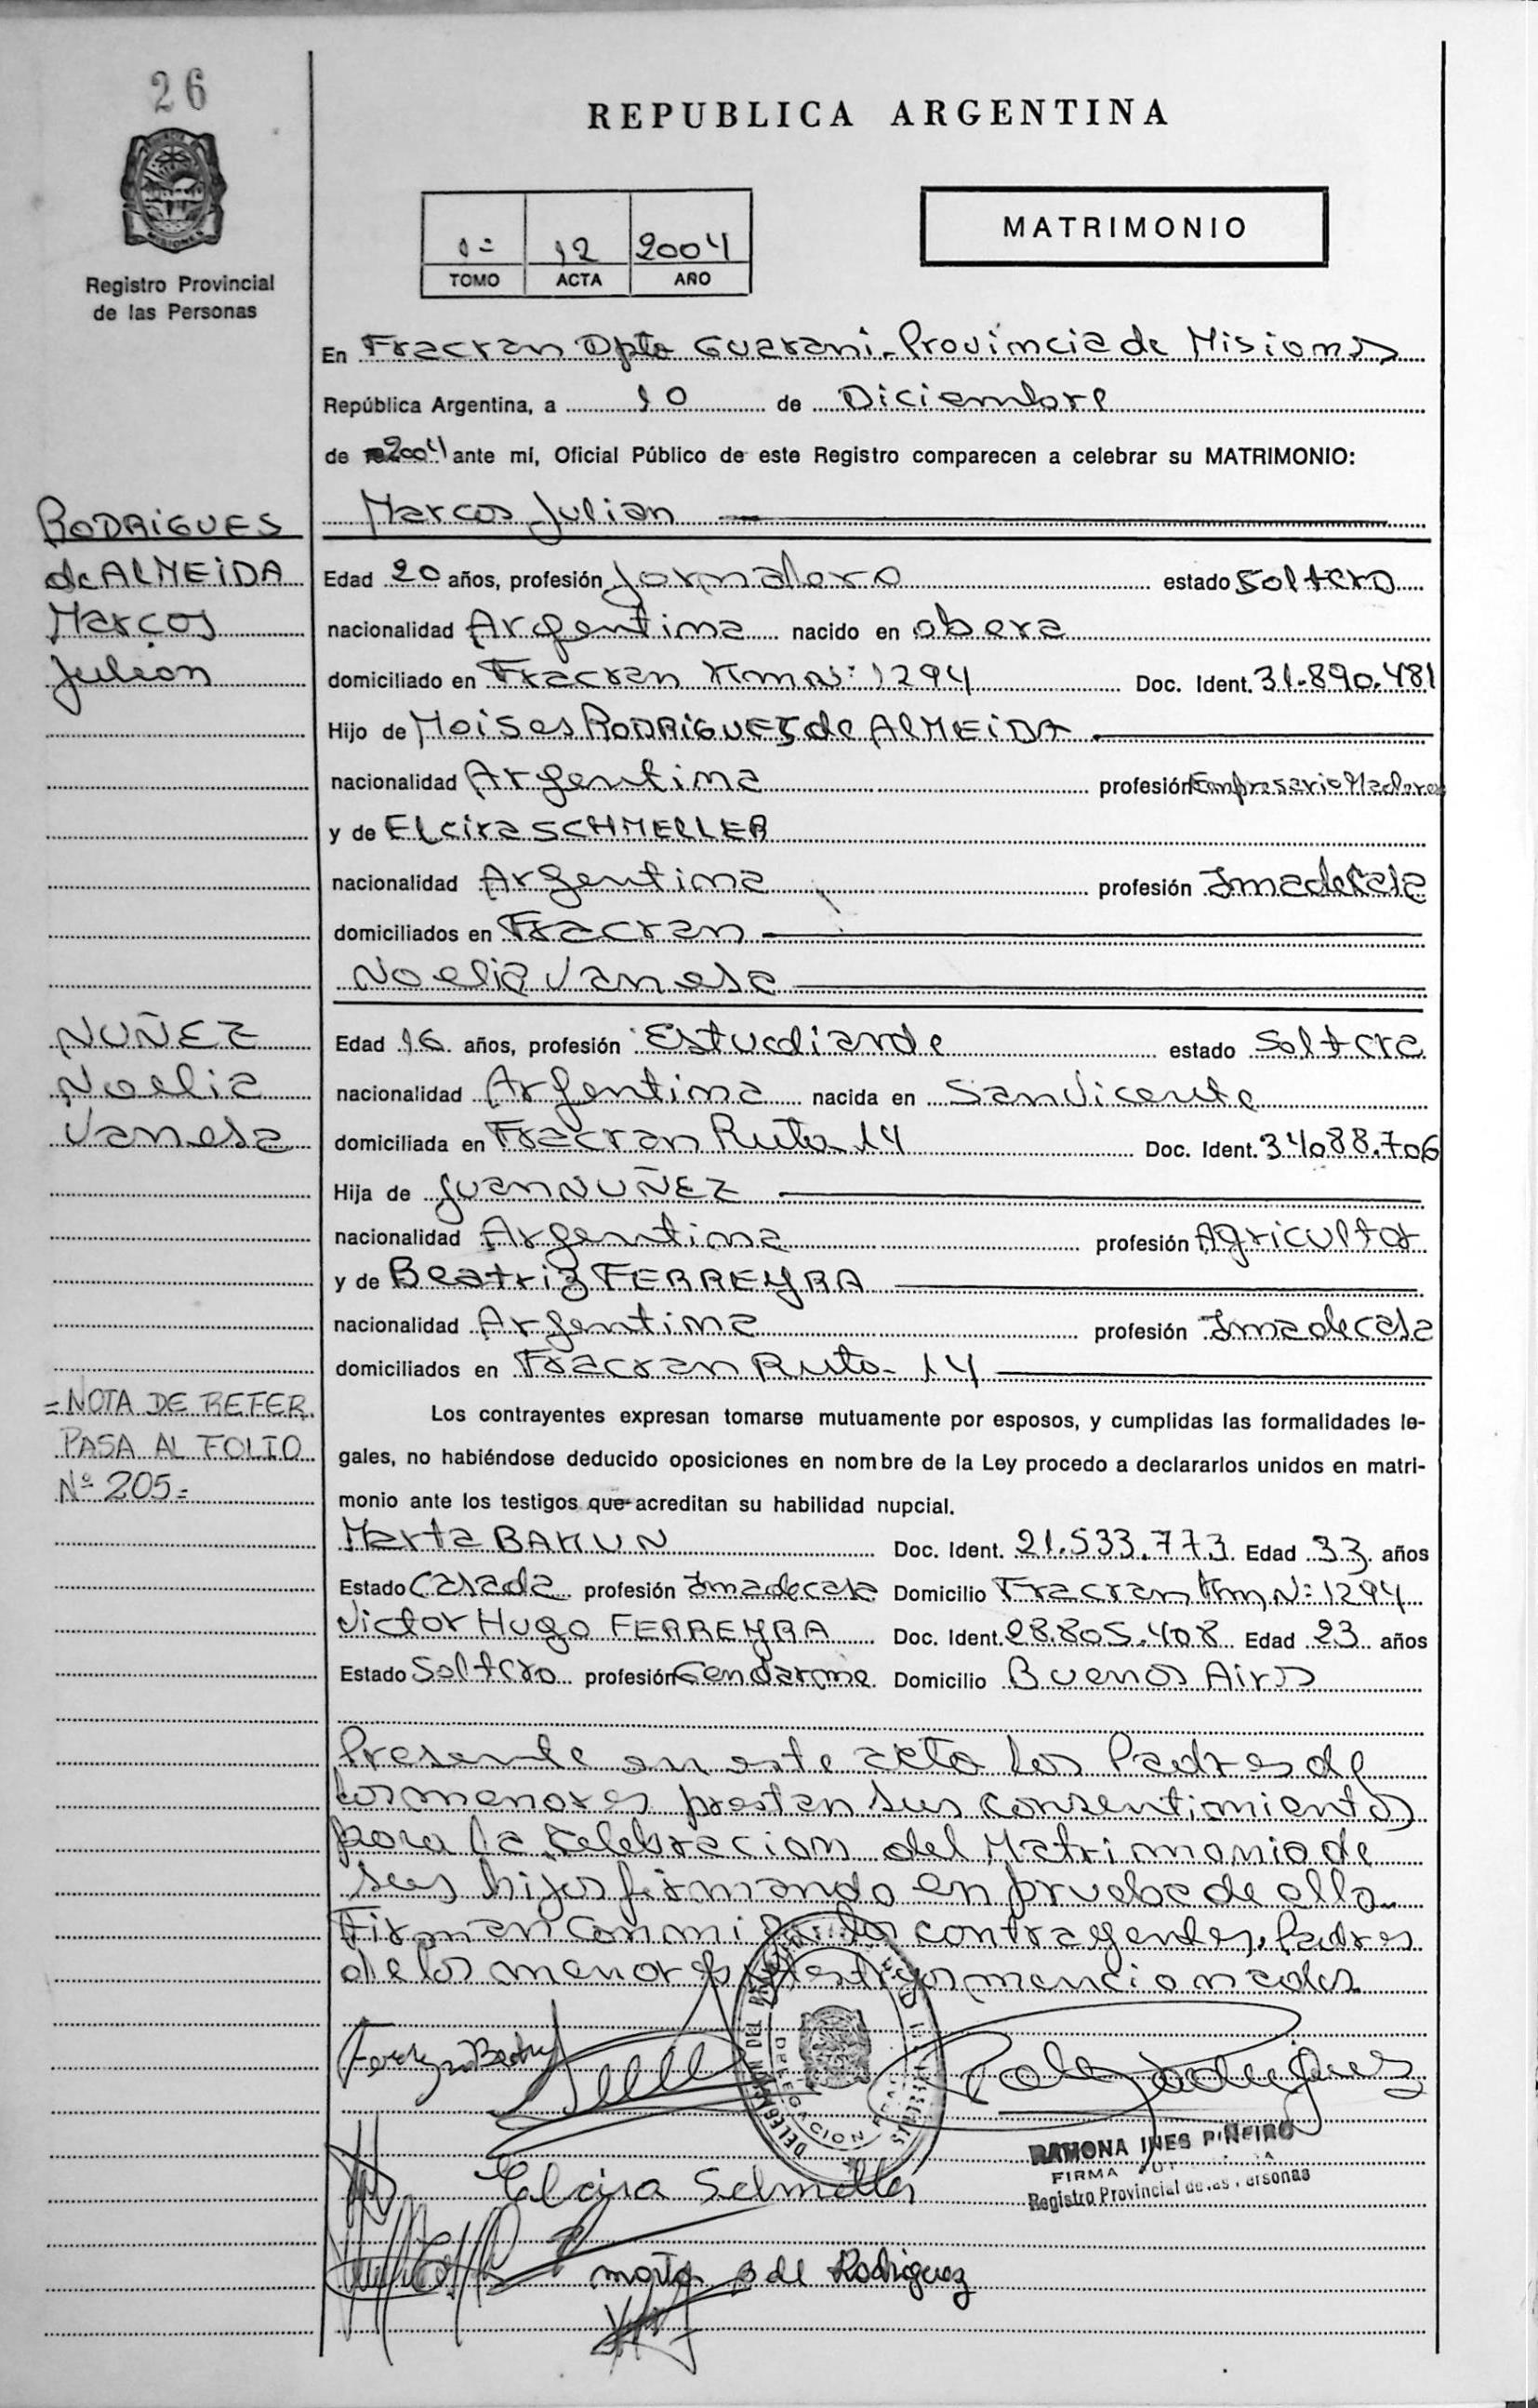 26
REPUBLICA ARGENTINA
MISIONES
Registro Provincial
de las Personas
1º 12 2004
TOMO ACTA AÑO
MATRIMONIO
En Fracran Dpto Guarani-Provincia de Misiones
República Argentina, a 10 de Diciembre
de 2004 ante mí, Oficial Público de este Registro comparecen a celebrar su MATRIMONIO:
RODRIGUES
de ALMEIDA
Marcos
Julian
Marcos Julian
Edad 20 años, profesión Jornalero estado Soltero
nacionalidad Argentina nacido en obera
domiciliado en Fracran Km Nº 1294 Doc. Ident. 31.890.481
Hijo de Moises RODRIGUES de ALMEIDA
nacionalidad Argentina profesión Empresario Madere
y de Elcira SCHMELLER
nacionalidad Argentina profesión Ama de Casa
domiciliados en Fracran
Noelia Vanesa
NUÑEZ
Noelia
Vanesa
Edad 16 años, profesión Estudiande estado Soltera
nacionalidad Argentina nacida en San Vicente
domiciliada en Fracran Ruta 14 Doc. Ident. 34.088.706
Hija de Juan NUÑEZ
nacionalidad Argentina profesión Agricultor
y de Beatriz FERREYRA
nacionalidad Argentina profesión Ama de casa
domiciliados en Fracran Ruta- 14
=NOTA DE REFER.
PASA AL FOLIO
Nº 205=
Los contrayentes expresan tomarse mutuamente por esposos, y cumplidas las formalidades le-
gales, no habiéndose deducido oposiciones en nombre de la Ley procedo a declararlos unidos en matri-
monio ante los testigos que acreditan su habilidad nupcial.
Marta BAHUN Doc. Ident. 21.533.773 Edad 33 años
Estado Casada profesión Ama de casa Domicilio Fracran Km Nº 1294
Victor Hugo FERREYRA Doc. Ident. 28.805.408 Edad 23 años
Estado Soltero profesión Gendarme Domicilio Buenos Aires
Presente en este acto los Padres de
los menores prestan sus consentimientos
para la Celebracion del Matrimonio de
sus hijos firmando en prueba de ello.
Firman Conmigo los contrayentes, Padres
de los menores y testigos mencionados.
DELEGACION DEL
Elcira Schmeller
RAMONA INES PIÑEIRO
FIRMA
Registro Provincial de las Personas
marta B de Rodriguez